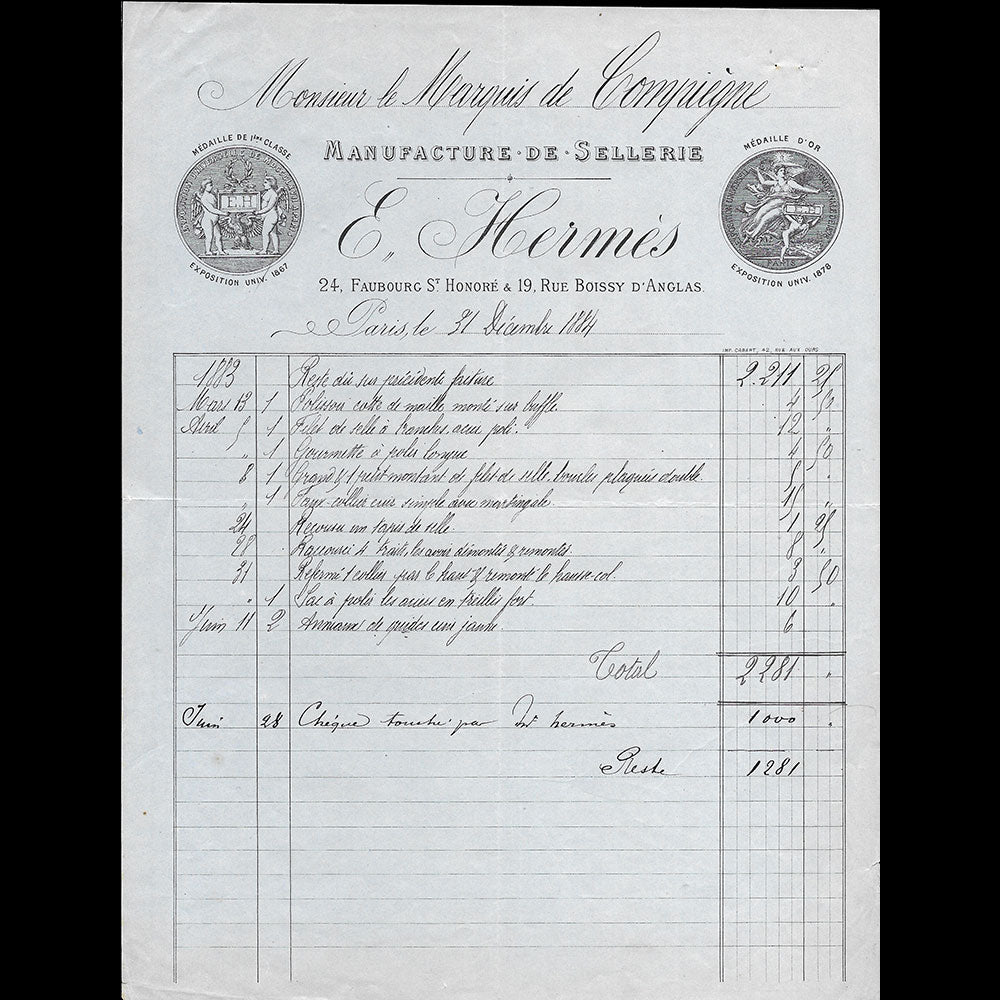 Monsieur le Marquis de Compiègne
MÉDAILLE DE 1ère CLASSE
E.H
EXPOSITION UNIV. 1867
MANUFACTURE · DE · SELLERIE
E. Hermès
MÉDAILLE D'OR
E.H
PARIS
EXPOSITION UNIV. 1878
24, FAUBOURG ST HONORÉ & 19, RUE BOISSY D'ANGLAS.
Paris, le 31 Décembre 1884
IMP. CABERT, 42, RUE AUX OURS
1883 Reste dû sur précédente facture 2.211 25
Mars 13 1 Polissoir cotte de maille monté sur buffle. 4 50
Avril 5 1 Filet de selle à branches, acier poli. 12 "
" 1 Gourmette à polir longue 4 50
8 1 Grand & 1 petit montant de filet de selle, boucles plaquées double. 5 "
" 1 Faux-collier cuir simple avec martingale. 15 "
24 Recousu un tapis de selle. 1 25
28 Raccourci 4 traits, les avoir démontés & remontés. 8 "
31 Refermé 1 collier par le haut & remonté le hausse-col. 3 50
" 1 Sac à polir les aciers en treillis fort. 10 "
Juin 11 2 Anneaux de guides cuir jaune. 6
Total 2281 "
Juin 28 Chèque touché par Mr hermès 1000 "
Reste 1281